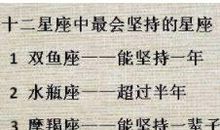 十二星座中最会坚持的星座
1 双鱼座——能坚持一年
2 水瓶座——超过半年
3 摩羯座——能坚持一辈子